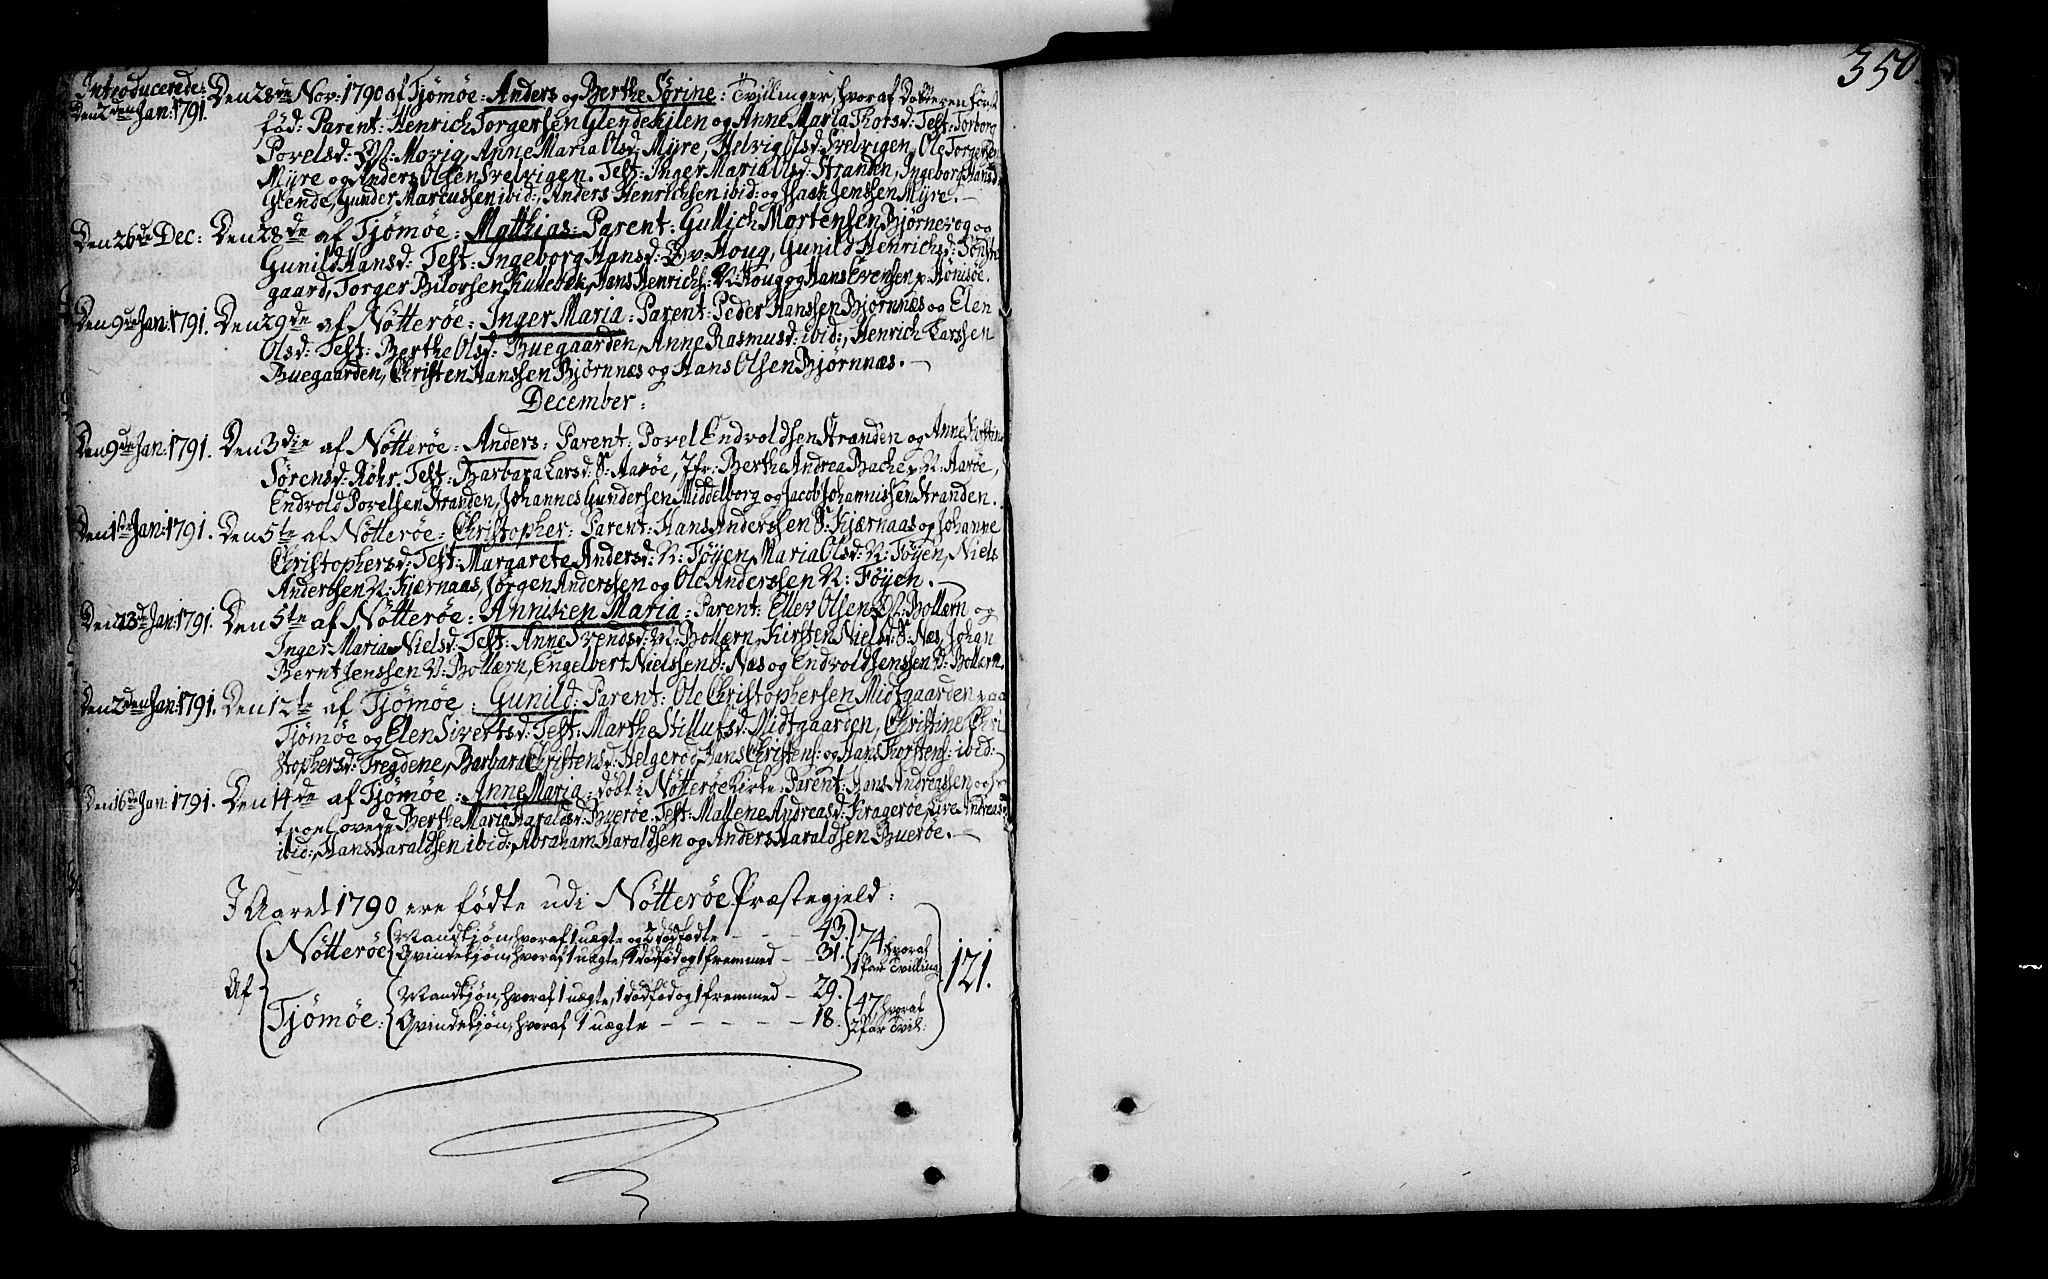 350.
Introducerede:
Den 2den Jan: 1791. Den 28de Nov: 1790 af Tjömöe: Anders og Berthe Sørine: Tvillinger, hvoraf Datteren først
fød: Parent: Henrich Torgersen Glendekilen og Anne Maria Thorsd: Test: Torborg
Povelsd: Anne Maria Olsd: Myre, Helvig Olsd: Svelvigen, Ole Torgersen
Myre og Anders Olsen Svelvigen. Test: Inger Maria Olsd: Stranden, Ingeborg Hansd:
Glende, Gunder Marcussen ibid:, Anders Henrichsen ibid: og Isaak Jenssen Myre.
Den 26de Dec: Den 28de af Tjömöe: Matthias: Parent: Gullich Mortensen Bjørnevog og
Gunild Hansd: Test: Ingeborg Hansd: Øv: Houg, Gunild Henrichsd: Sønstegaard,
Torger Hans Henrichs: N: Houg og Hans Evensen p: Hönisöe.
Den 9de Jan: 1791. Den 29de af Nötteröe: Inger Maria: Parent: Peder Hanssen Bjørnnæs og Elen
Olsd: Test: Berthe Olsd: Buegaarden, Anne Rasmusd: ibid:, Henrich Larssen
Buegaarden, Christen Hanssen Bjørnnæs og Hans Olsen Bjørnnæs.
December:
Den 9de Jan: 1791. Den 3die af Nötteröe: Anders: Parent: Povel Endvoldsen Stranden og Anne Kirstine
Sørensd: Röhr. Test: Barbara Larsd: S: Aaröe, Jfr: Berthe Andrea Bache p: N: Aaröe,
Endvold Povelsen Stranden, Johannes Gundersen Middelborg og Jacob Johannissen Stranden.
Den 1ste Jan: 1791. Den 5te af Nötteröe: Christopher: Parent: Hans Anderssen S: Kjærnaas og Johanne
Christophersd: Test: Margarete Andersd: N: Föyen, Maria Olsd: N: Föyen, Niels
Anderssen N: Kjærnaas, Jørgen Anderssen og Ole Anderssen N: Föyen.
Den 23de Jan: 1791. Den 5te af Nötteröe: Anniken Maria: Parent: Ellev Olsen N: Bollærn og
Inger Maria Nielsd: Test: Anne Svendsd: N: Bollærn, Kirsten Nielsd: S: Næs, Johan
Bernt Jenssen N: Bollærn, Engelbert Nielssen S: Næs og Endvold Jenssen N: Bollærn.
Den 2den Jan: 1791. Den 12te af Tjömöe: Gunild: Parent: Ole Christophersen Midtgaarden paa
Tjömöe og Elen Sivertsd: Test: Marthe Stillufsd: Midtgaarden, Christine Chri
stophersd: Tregdene, Barbara Christensd: Helgerød, Hans Christens: og Hans Thorstens: ibid:
Den 16de Jan: 1791. Den 14de af Tjömöe: Anne Maria: döbt i Nötteröe Kirke: Parent: Hans Andreassen og
troelovede Berthe Maria Haraldsd: Bueröe. Test: Mallene Andreasd: Krageröe, Live Andreasd:
ibid:, Hans Haraldsen ibid:, Abraham Haraldsen og Anders Haraldsen Bueröe.
I Aaret 1790 ere födte udi Nötteröe Præstegjeld:
Af Nötteröe Mandkjön, hvoraf 1 uægte og 2 dödfödte - - - 43.
Qvindekjön, hvoraf 1 uægte, 1 dödföd og 1 fremmed - - 31.
74, hvoraf
1 Par Tvilling
Tjömöe: Mandkjön, hvoraf 1 uægte, 1 dödföd og 1 fremmed - 29.
Qvindekjön, hvoraf 1 uægte - - - - - 18.
47, hvoraf
2 Par Tvil:
121.